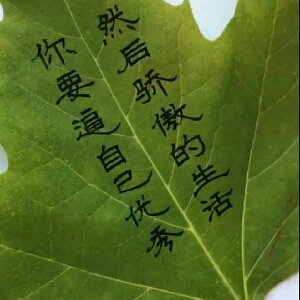 你要逼自己优秀
然后骄傲的生活